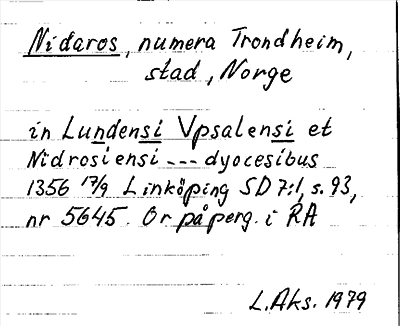 Nidaros, numera Trondheim,
stad, Norge
in Lundensi Vpsalensi et
Nidrosiensi --- dyocesibus
1356 17/9 Linköping SD 7:1, s. 93,
nr 5645. Or på perg. i RA
L.Aks. 1979